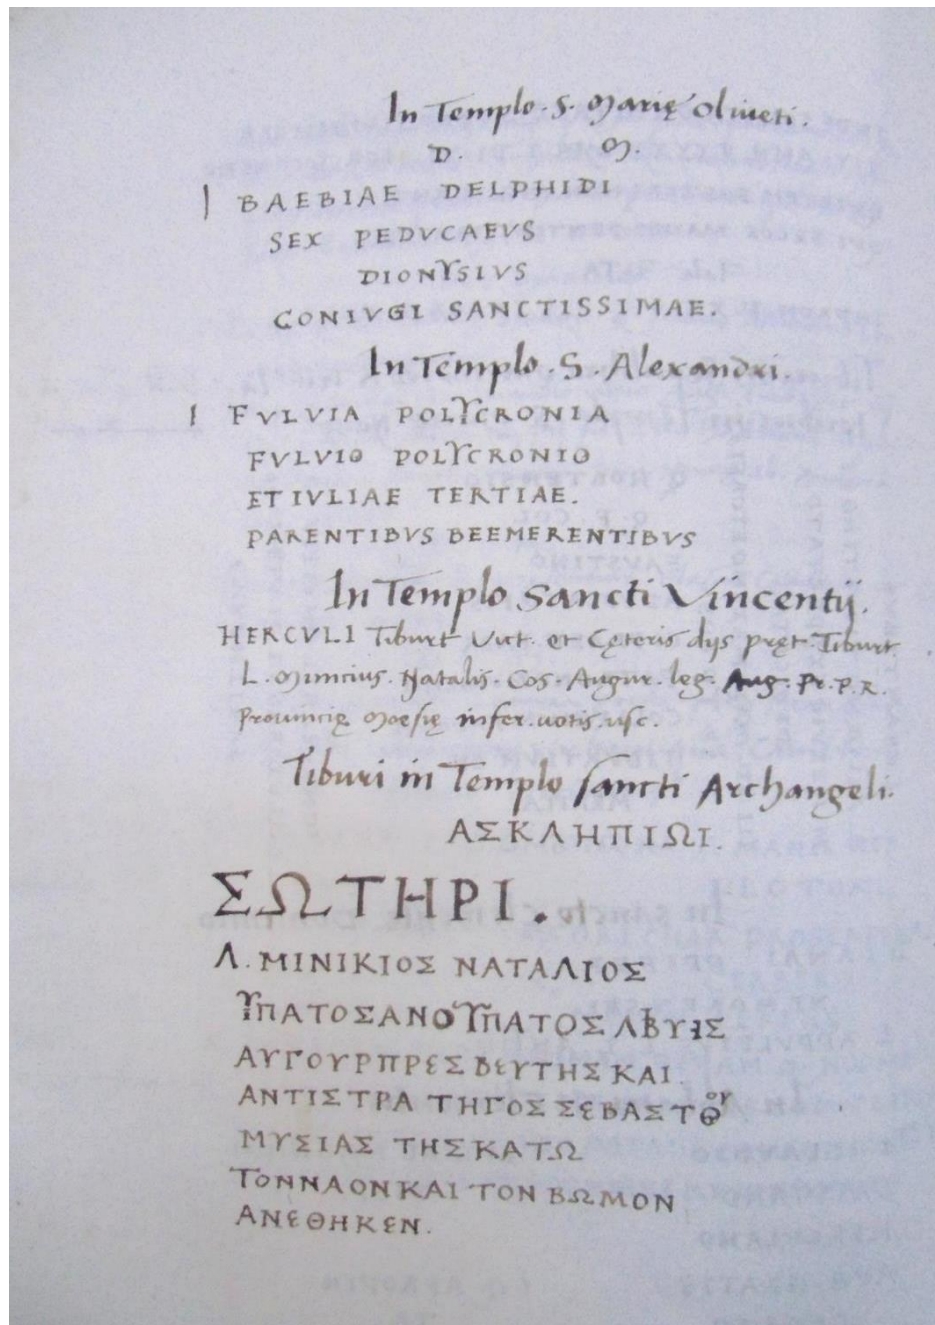 In Templo. S. Marię oliueti.
D. M.
BAEBIAE DELPHIDI
SEX PEDVCAEVS
DIONYSIVS
CONIVGI SANCTISSIMAE.
In Templo. S. Alexandri.
FVLVIA POLYCRONIA
FVLVIO POLYCRONIO
ET IVLIAE TERTIAE.
PARENTIBVS BEEMERENTIBVS
In Templo Sancti Vincentij.
HERCVLI Tiburt Vict. et Cęteris dijs pręt. Tiburt
L. Minicius. Natalis. Cos. Augur. leg. Aug. Pr. P. R.
Prouincię Moesię infer. uotis. usc.
Tiburi in Templo sancti Archangeli.
ΑΣΚΛΗΠΙΩΙ.
ΣΩΤΗΡΙ.
Λ. ΜΙΝΙΚΙΟΣ ΝΑΤΑΛΙΟΣ
ΥΠΑΤΟΣΑΝΟΥΠΑΤΟΣ
ΑΥΓΟΥΡΠΡΕΣΒΕΥΤΗΣ ΚΑΙ
ΑΝΤΙΣΤΡΑ ΤΗΓΟΣ ΣΕΒΑΣΤΟΥ
ΜΥΣΙΑΣ ΤΗΣ ΚΑΤΩ
ΤΟΝΝΑΟΝ ΚΑΙ ΤΟΝ ΒΩΜΟΝ
ΑΝΕΘΗΚΕΝ.